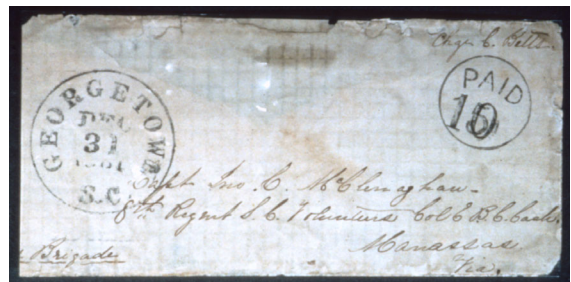 Chge C. Betts
PAID
10
GEORGETOWN
DEC
31
1861
S.C
Capt Jno. C. McClenaghan
8th Regent S. C. Volunteers Col E. B. C. Cash
Manassas
Via.
Brigade